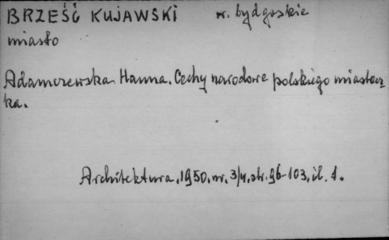 BRZEŚĆ KUJAWSKI w. bydgoskie
miasto
Adamczewska Hanna. Cechy narodowe polskiego miastecz
ka.
Architektura, 1950, nr. 3/4, str. 96-103, il. 1.